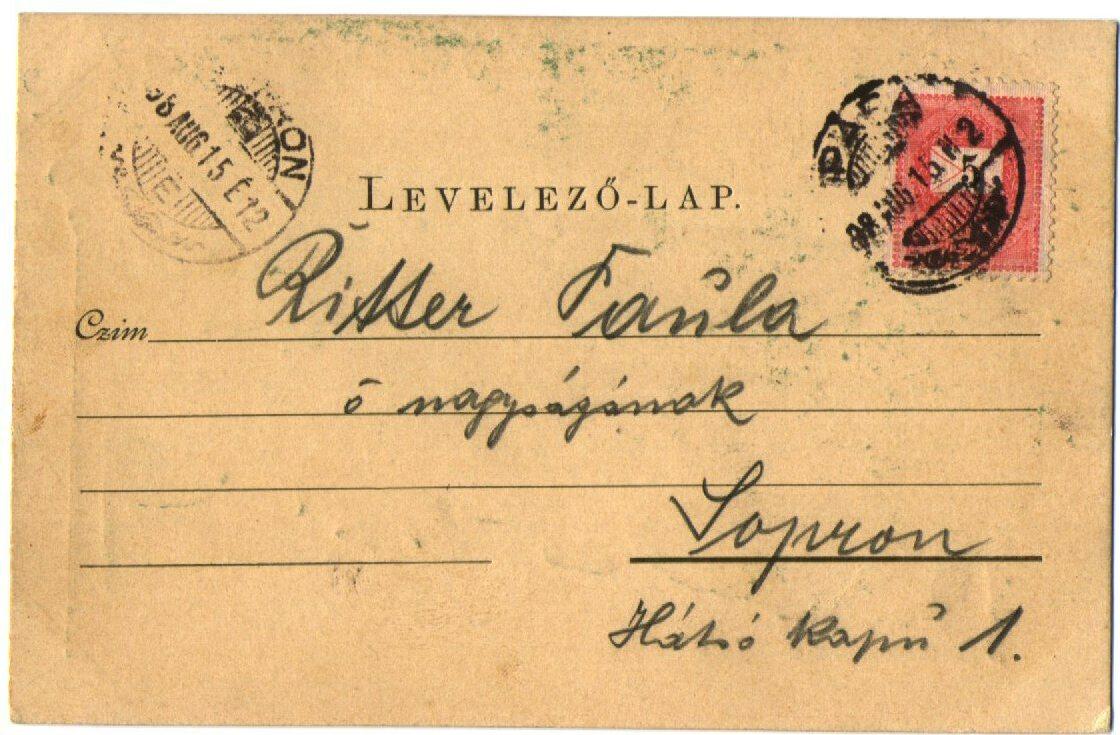 98 AUG 15 É 12
E
98 AUG 15 N 2
5
LEVELEZŐ-LAP.
Czim Ritter Paüla
ő nagyságának
Sopron
Hátsó kapū 1.